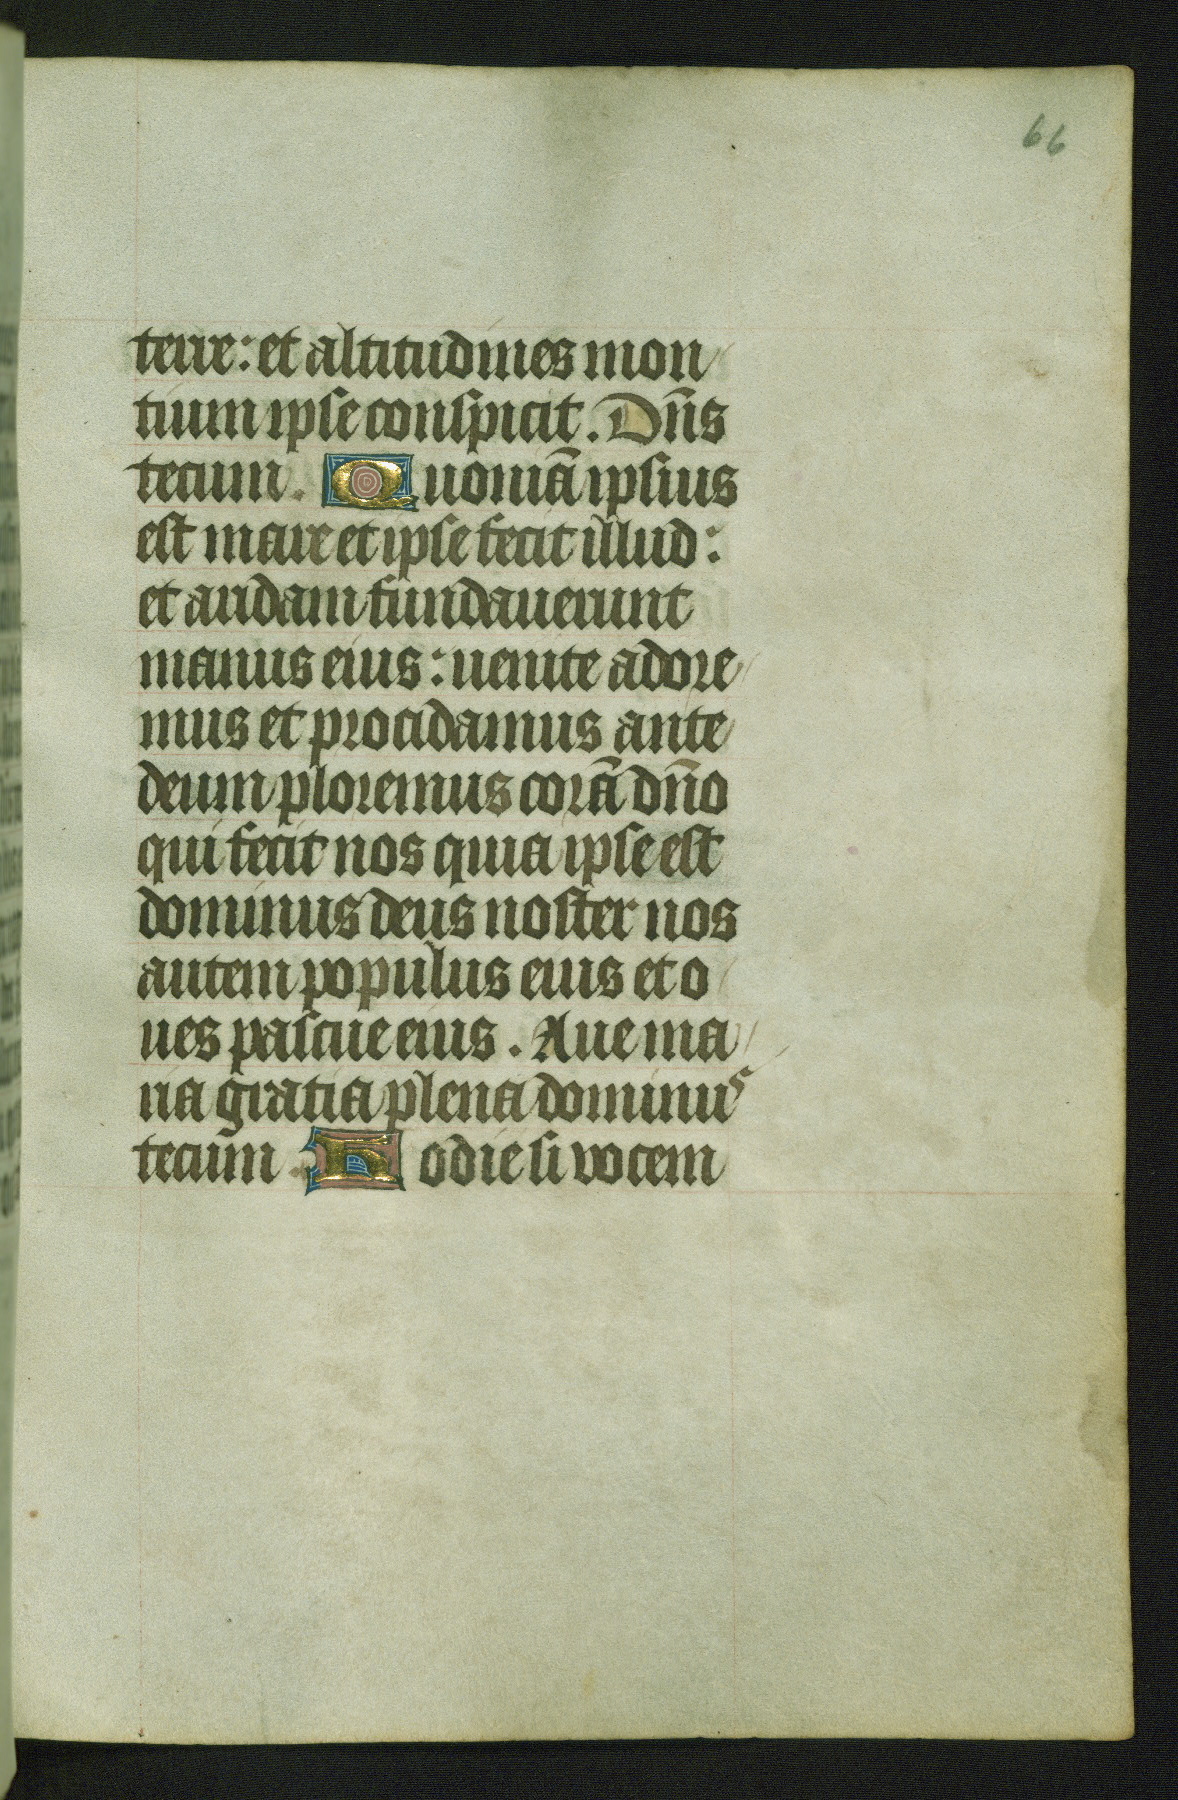 66
terre: et altitudines mon
tium ipse conspicit. Dn̄s
tecum. Quoniā ipsius
est mare et ipse fecit illud:
et aridam fundauerunt
manus eius: uenite adore
mus et procidamus ante
deum ploremus corā dn̄o
qui fecit nos quia ipse est
dominus deus noster nos
autem populus eius et o
ues pascue eius. Aue ma
ria gratia plena dominus
tecum. Hodie si vocem